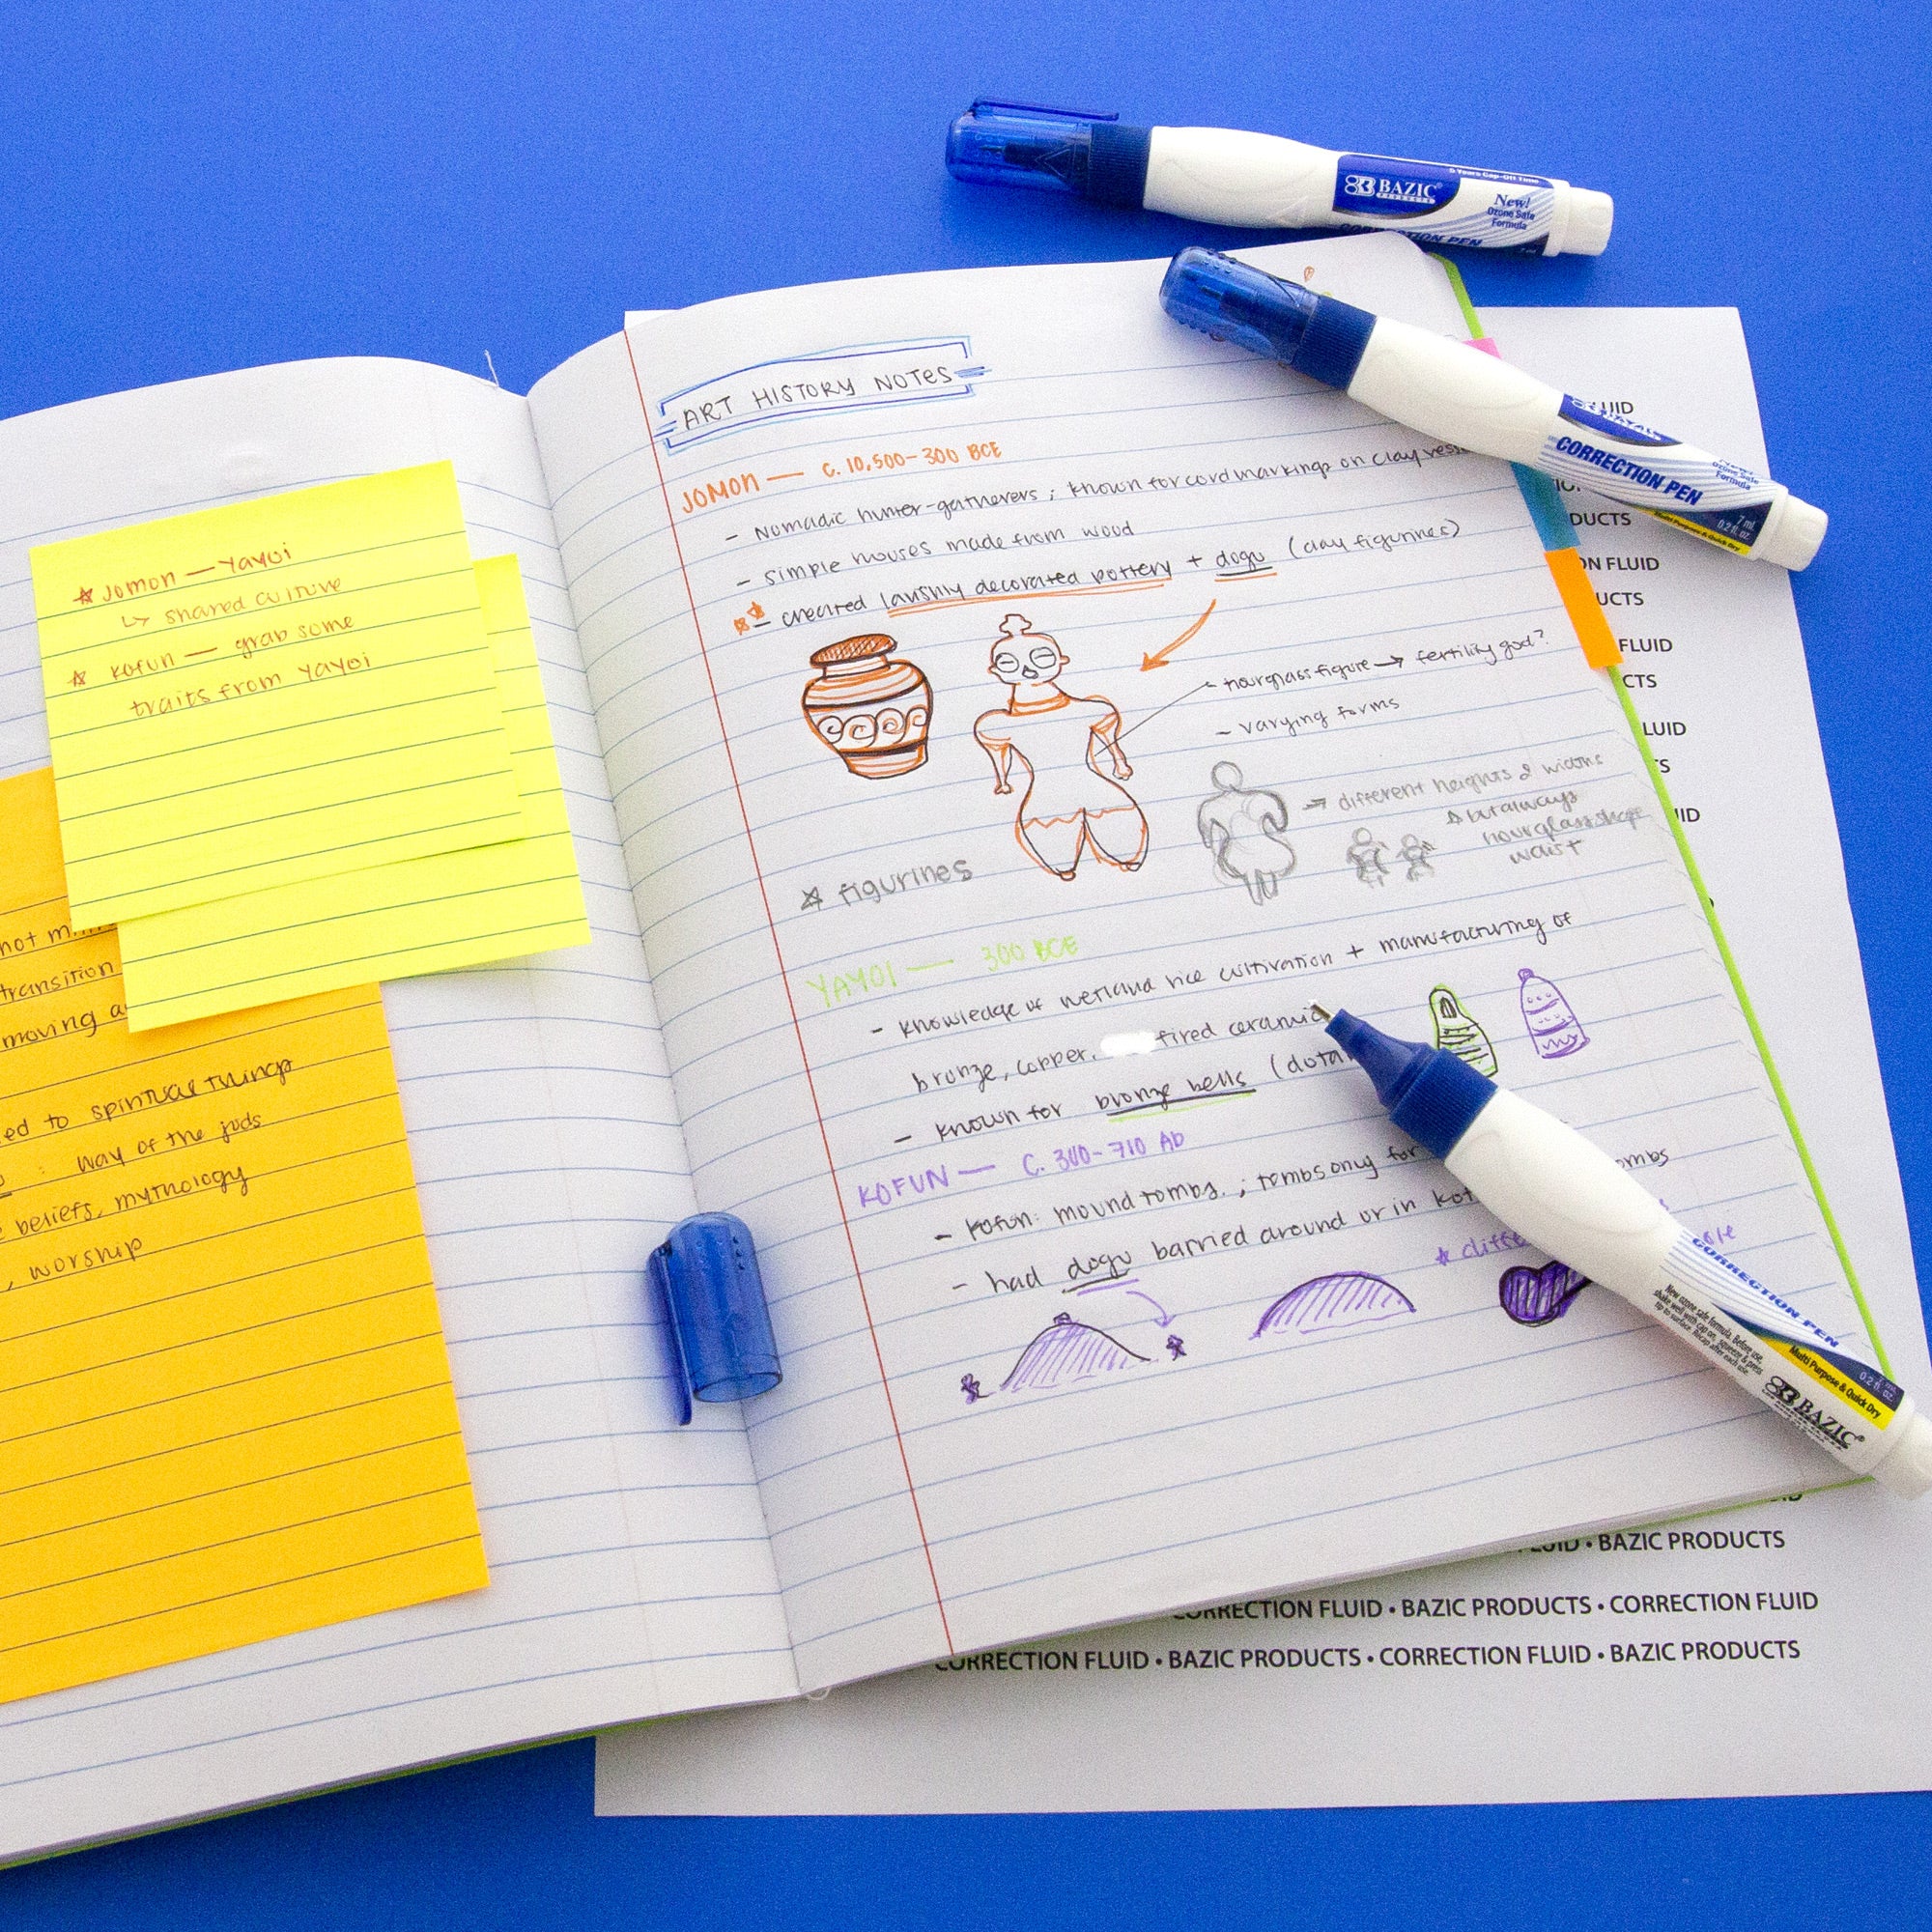 ART HISTORY NOTES
JOMON — C. 10,500-300 BCE
- Nomadic hunter-gatherers ; known for cord markings on clay
- simple houses made from wood
- created lavishly decorated pottery + dogu (clay figurines)
- hourglass figure → fertility god?
- varying forms
→ different heights & widths
but always
hourglass shape
waist
☆ figurines
YAYOI — 300 BCE
- knowledge of wetland rice cultivation + manufacturing of
bronze, copper, fired ceramic
- known for bronze bells
KOFUN — C. 300-710 AD
- kofun: mound tombs. ; tombs only for
- had dogu barried around or in
☆ jomon — Yayoi
↳ shared culture
☆ kofun — grab some
traits from Yayoi
not
transition
moving
ed to spiritual things
: way of the gods
beliefs, mythology
, worship
BAZIC
PRODUCTS
5 Years Cap-Off Time
New!
Ozone Safe
Formula
CORRECTION PEN
BAZIC
CORRECTION PEN
New!
Ozone Safe
Formula
7 mL
0.2 fl. oz.
Multi Purpose & Quick Dry
CORRECTION PEN
New ozone safe formula. Before use,
shake well with cap on, squeeze & press
tip to surface. Recap after each use.
Multi Purpose & Quick Dry
0.2 fl. oz.
BAZIC
FLUID
DUCTS
ON FLUID
UCTS
FLUID
CTS
LUID
TS
ID
FLUID • BAZIC PRODUCTS
CORRECTION FLUID • BAZIC PRODUCTS • CORRECTION FLUID
CORRECTION FLUID • BAZIC PRODUCTS • CORRECTION FLUID • BAZIC PRODUCTS